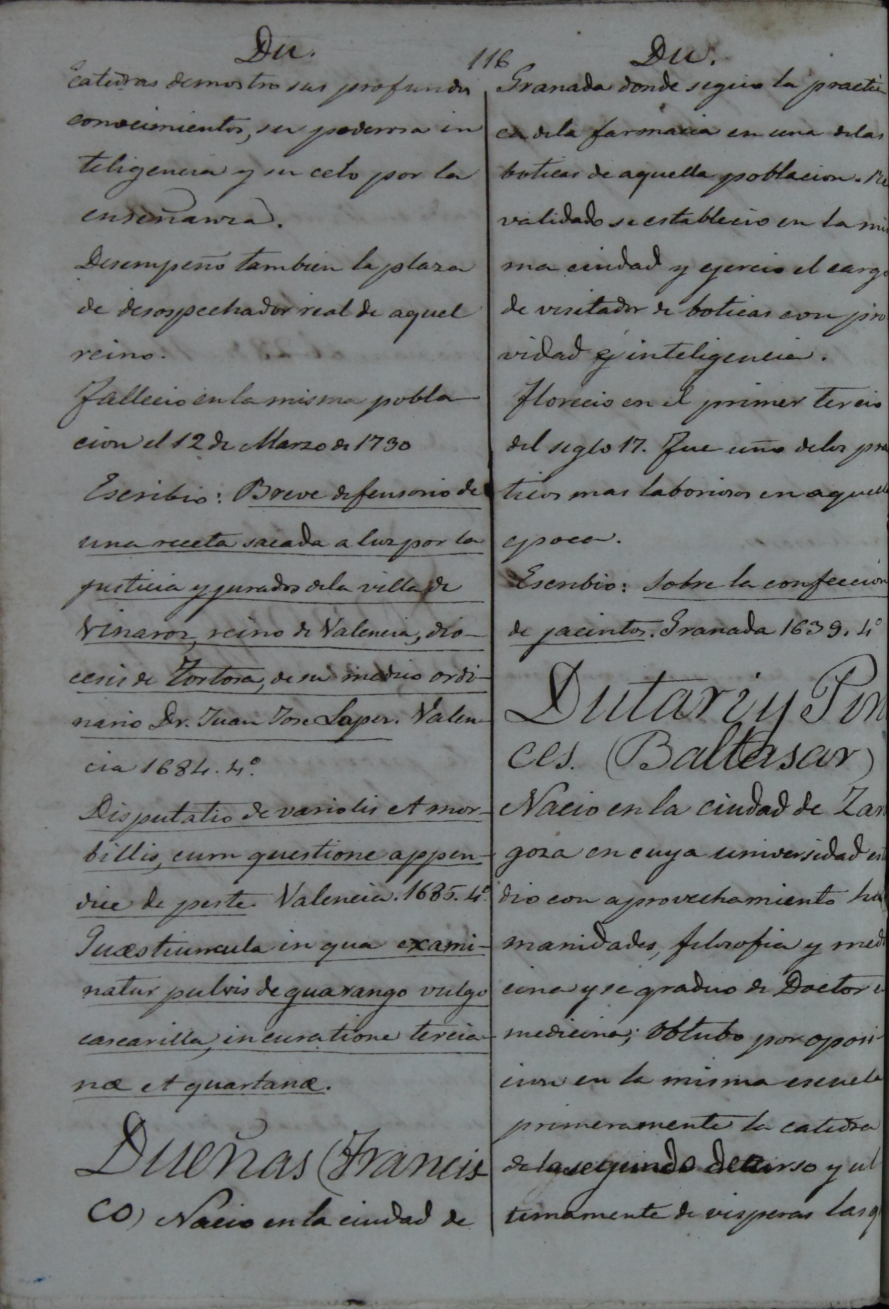 Du.
116
Du.
catedras demostro sus profundos
conocimientos, su poderosa in
teligencia y su celo por la
enseñanza.
Desempeño tambien la plaza
de desospechador real de aquel
reino.
Fallecio en la misma pobla
cion el 12 de Marzo de 1730
Escribio: Breve defensorio de
una receta sacada a luz por la
justicia y jurados dela villa de
Vinaroz, reino de Valencia, dio-
cesis de Tortosa, de su medico ordi-
nario Dr. Juan Jose Loper. Valen-
cia 1684. 4º.
Disputatio de variolis et mor-
billis, cum questione appen-
dice de peste. Valencia. 1685. 4º.
Quæstiuncula in qua exami-
natur pulvis de guarango vulgo
cascarilla, in curatione tercia-
næ et quartanæ.
Dueñas (Francis
co) Nacio en la ciudad de
Granada donde seguio la practi
ca dela farmacia en una delas
boticas de aquella poblacion. Re
validado se establecio en la mis
ma ciudad y ejercio el cargo
de visitador de boticas con pro
vidad é inteligencia.
Florecio en el primer tercio
del siglo 17. Fue uno delos prac
ticos mas laboriosos en aquella
epoca.
Escribio: Sobre la confeccion
de jacintos. Granada 1639. 4º
Dutari y Pon
ces. (Baltasar)
Nacio en la ciudad de Zara
goza en cuya universidad estu
dio con aprovechamiento hu
manidades, filosofia y medi
cina y se graduo de Doctor en
medicina; obtubo por oposi
cion en la misma escuela
primeramente la catedra
de la segundo de curso y ul
timamente de visperas las q